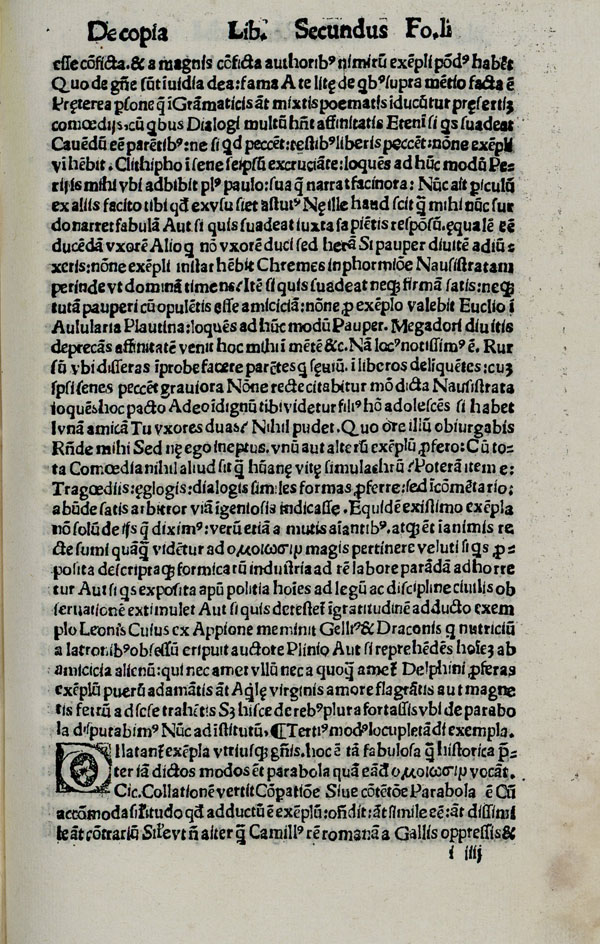 De copia Lib. Secundus Fo. li
esse cōficta. & a magnis cōficta authoribꝰ nimirū exēpli pōdꝰ habēt
Quo de gn̄e sūt īuidia dea: fama A te litę de qbꝰ supra mētio facta ē
Pręterea psone q̄ ī Grāmaticis āt mixtis poematis īducūtur pręsertiꝫ
comœdijs, cū qbus Dialogi multū hn̄t affinitatis Eteni si qs suadeat
Cauēdū eē parētibꝰ: ne si qd peccēt: testibꝰ liberis peccēt: nōne exēpli
vī hēbit. Clithipho ī sene seipsū excruciāte: loquēs ad hūc modū Pe-
rijsis mihi vbi adbibit plꝰ paulo: sua q̄ narrat facinora: Nūc ait piculū
ex aliis facito tibi qd̄ ex vsu siet astutꝰ Ne ille haud scit q̄ mihi nūc sur
do narret fabulā Aut si quis suadeat iuxta sapiētis respōsū. ęqualē eē
ducēdā vxorē Alioq nō vxorē duci sed herā Si pauper diuitē adiū-
xeris: nōne exēpli instar hēbit Chremes in phormiōe Nausistratam
perinde vt dominā timens Itē si quis suadeat neqꝫ firmā satis: neqꝫ
tutā pauperi cū opulētis esse amiciciā: nōne ꝓ exēplo valebit Euclio ī
Aulularia Plautina: loquēs ad hūc modū Pauper. Megadori diuitis
deprecās affinitatē venit hoc mihi ī mētē &c. Nā locꝰ notissimꝰ ē. Rur
sū vbi disseras īprobe facere parētes q sęuiū. ī liberos deliquētes: cuꝫ
ipsi senes peccēt grauiora Nōne recte citabitur mō dicta Nausistrata
loquēs hoc pacto Adeo īdignū tibi videtur filiꝰ hō adolescēs si habet
Ivnā amicā Tu vxores duas: Nihil pudet. Quo ore illū obiurgabis
Rn̄de mihi Sed ne ego ineptus, vnū aut alterū exēplū ꝓfero: Cū to-
ta Comœdia nihil aliud sit q̄ hūanę vitę simulachrū: Poterā item e:
Tragœdiis: ęglogis: dialogis similes formas ꝓferre: sed īcōmētario;
abūde satis arbitror viā īgeniosis indicasse. Equidē existimo exēpla
nō solū de ijs q̄ diximꝰ: verū etiā a mutis aīantibꝰ. atqꝫ ēt īanimis re
cte sumi quāq̄ vidētur ad ομοιωσιν magis pertinere veluti si qs ꝓ-
posita descriptaqꝫ formicarū industria ad rē labore parādā adhorre
tur Aut si qs exposita apū politia hoīes ad legū ac discipline ciuilis ob
seruationē extimulet Aut si quis detestet̄ īgratitudinē adducto exem
plo Leonis Cuius ex Appione meminit Gelliꝰ & Draconis q nutriciū
a latronibꝰ obsessū eripuit auctore Plinio Aut si reprehēdēs hoīeꝫ ab
amicicia alienū: qui nec amet vllū nec a quoq̄ amet̄ Delphini ꝓferas
exēplū puerū adamātis āt Aq̄lę virginis amore flagrātis aut magne
tis ferrū ad sese trahētis Sꝫ hisce de rebꝰ plura fortassis vbi de parabo
la disputabimꝰ Nūc ad īstitutū, ¶ Tertiꝰ modꝰ locupletādi exempla.
Dilatant̄ exēpla vtriusqꝫ gn̄is. hoc ē tā fabulosa q̄ historica p̄-
ter iā dictos modos ēt parabola quā eād̄ ομοιωσιν vocāt.
Cic. Collationē vertit Cōpatiōe Siue cōtētōe Parabola ē Cū
accōmoda silitudo qd̄ adductū ē exēplū: on̄dit: āt simile eē: āt dissimi
le āt cōtrariū Sile vt n̄ aiter q̄ Camillꝰ rē romanā a Gallis oppressis &
i iiij